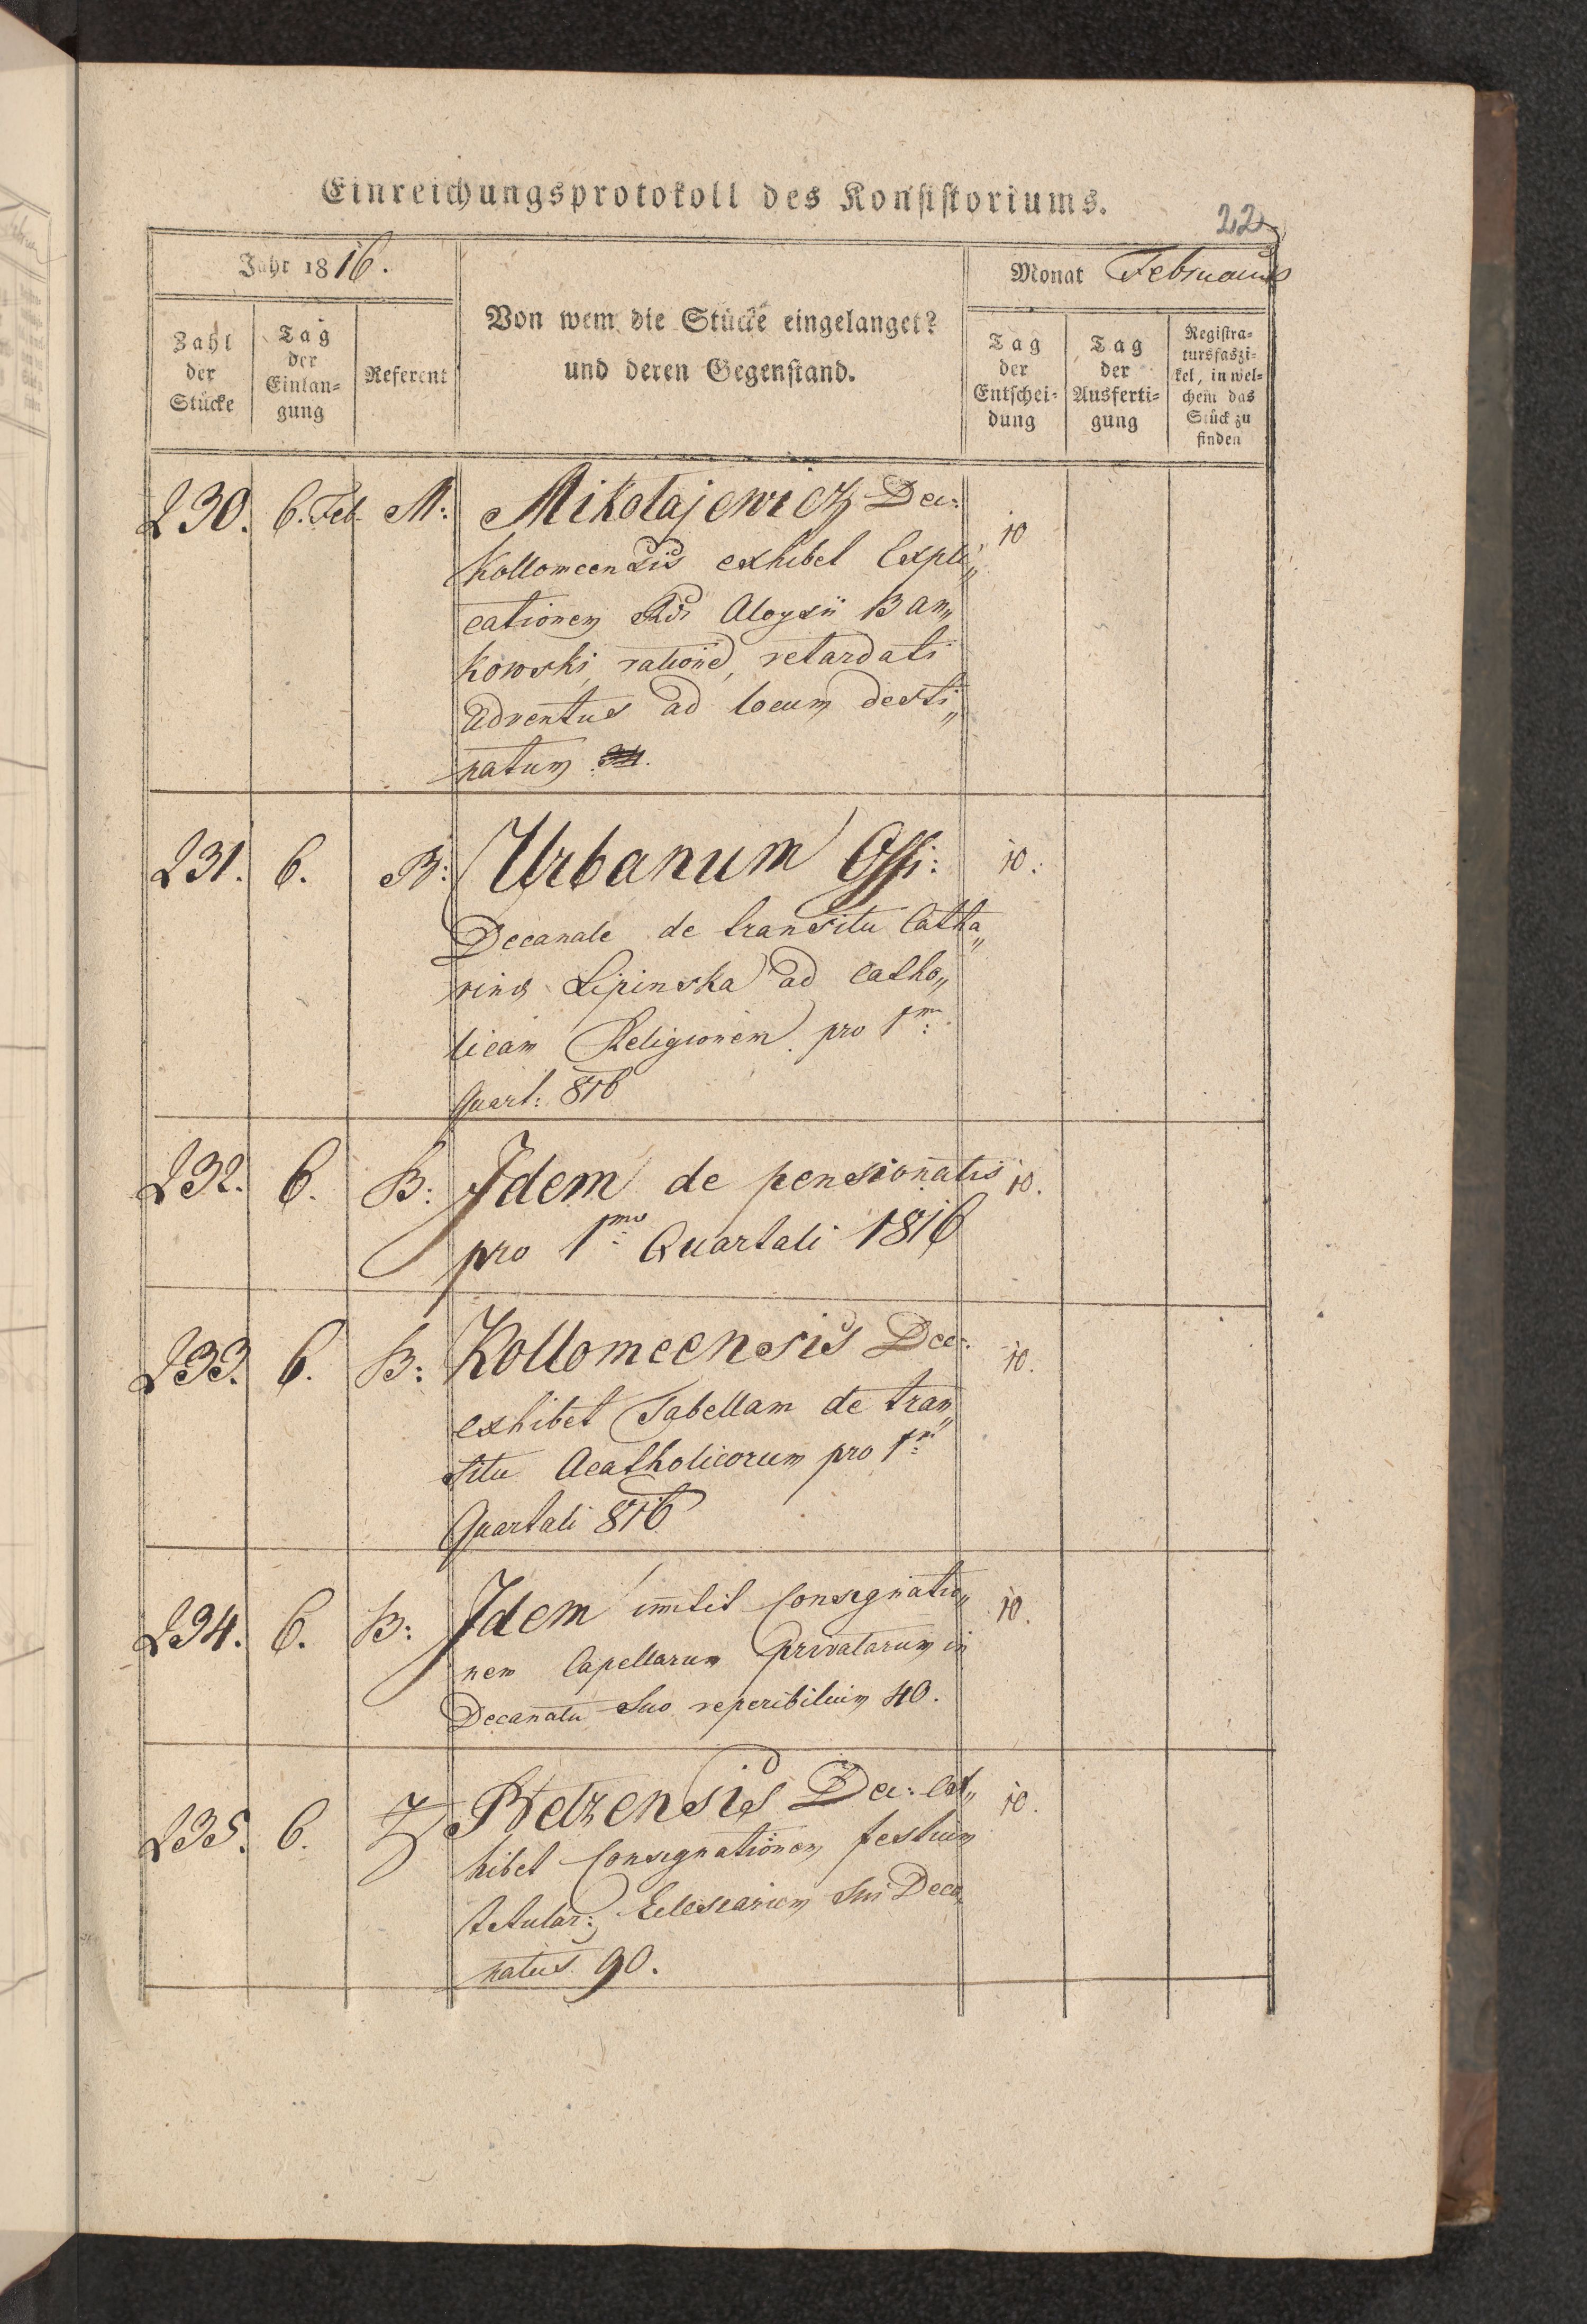 Einreichungsprotokoll des Konsistoriums.
22
Jahr 1816.
Monat Februarius
Zahl der Stücke
Tag der Einlan= gung
Referent
Von wem die Stücke eingelanget?
und deren Gegenstand.
Tag der Entschei= dung
Tag der Ausferti= gung
Registra= tursfaszi= kel, in wel= chem das Stück zu finden
230. 6. Feb. M: Mikołajewicz Dec: 10
Kollomeensis exhibet Expli„
cationem Aloysii Ban„
kowski, ratione, retardati
adventus ad locum desti„
natum
231. 6. B: Urbanum Offi: 10.
Decanale de transitu Catha„
rina Lipinska ad catho„
licam Religionem pro 1m:
Quart: 816
232. 6. B: Idem de pensionatis 10.
pro 1mo: Quartali 1816
233. 6. B: Kollomeensis Dec: 10.
exhibet Tabellam de tran„
situ Acatholicorum pro 1m:
Quartali 816
234. 6. B: Idem im̅tit Consignatio„ 10.
nem Capellarum privatarum in
Decanatu suo reperibilium 40.
235. 6. Z Betzensis Dec: Exh„ 10.
hibet Consignationem festium
titular: Eclesiarum sui Deca„
natus 90.